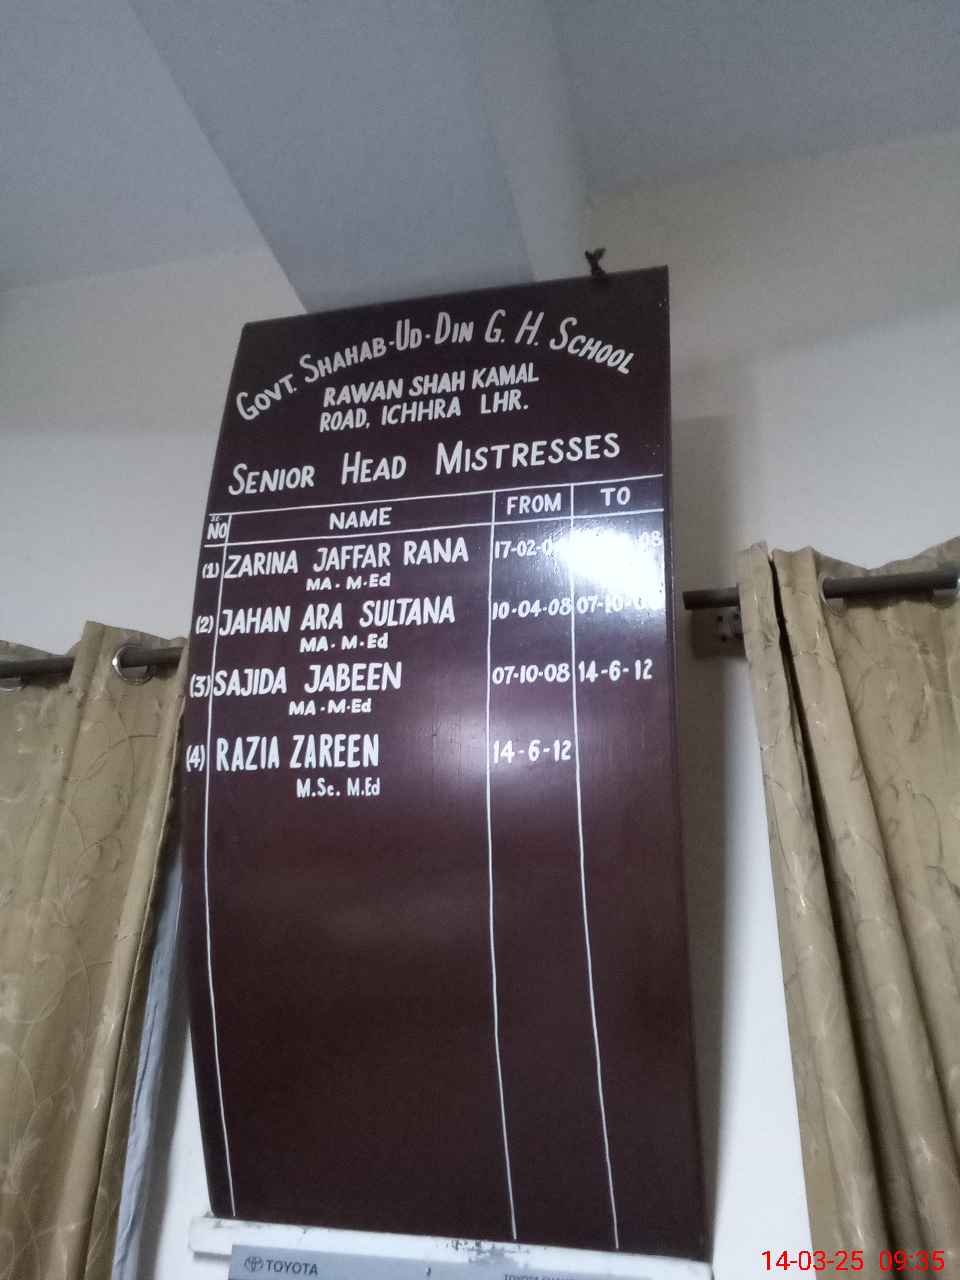 GOVT. SHAHAB-UD-DIN G. H. SCHOOL
RAWAN SHAH KAMAL
ROAD, ICHHRA LHR.
SENIOR HEAD MISTRESSES
SR. NO NAME FROM TO
(1) ZARINA JAFFAR RANA
MA. M.Ed
(2) JAHAN ARA SULTANA 10-04-08
MA. M.Ed
(3) SAJIDA JABEEN 07-10-08 14-6-12
MA.M.Ed
(4) RAZIA ZAREEN 14-6-12
M.Sc. M.Ed
TOYOTA
14-03-25 09:35